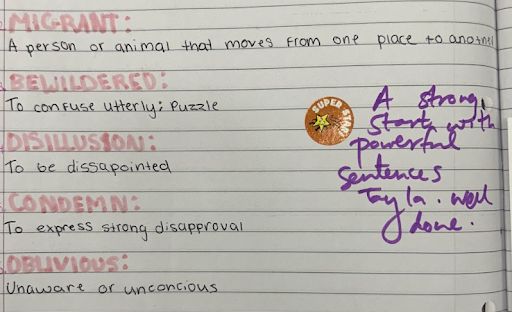 MIGRANT:
A person or animal that moves from one place to another
BEWILDERED:
To confuse utterly; Puzzle
DISILLUSION:
To be dissapointed
CONDEMN:
To express strong disapproval
OBLIVIOUS:
Unaware or unconcious
SUPER STAR
A strong
start with
powerful
sentences
Tayla. well
done.